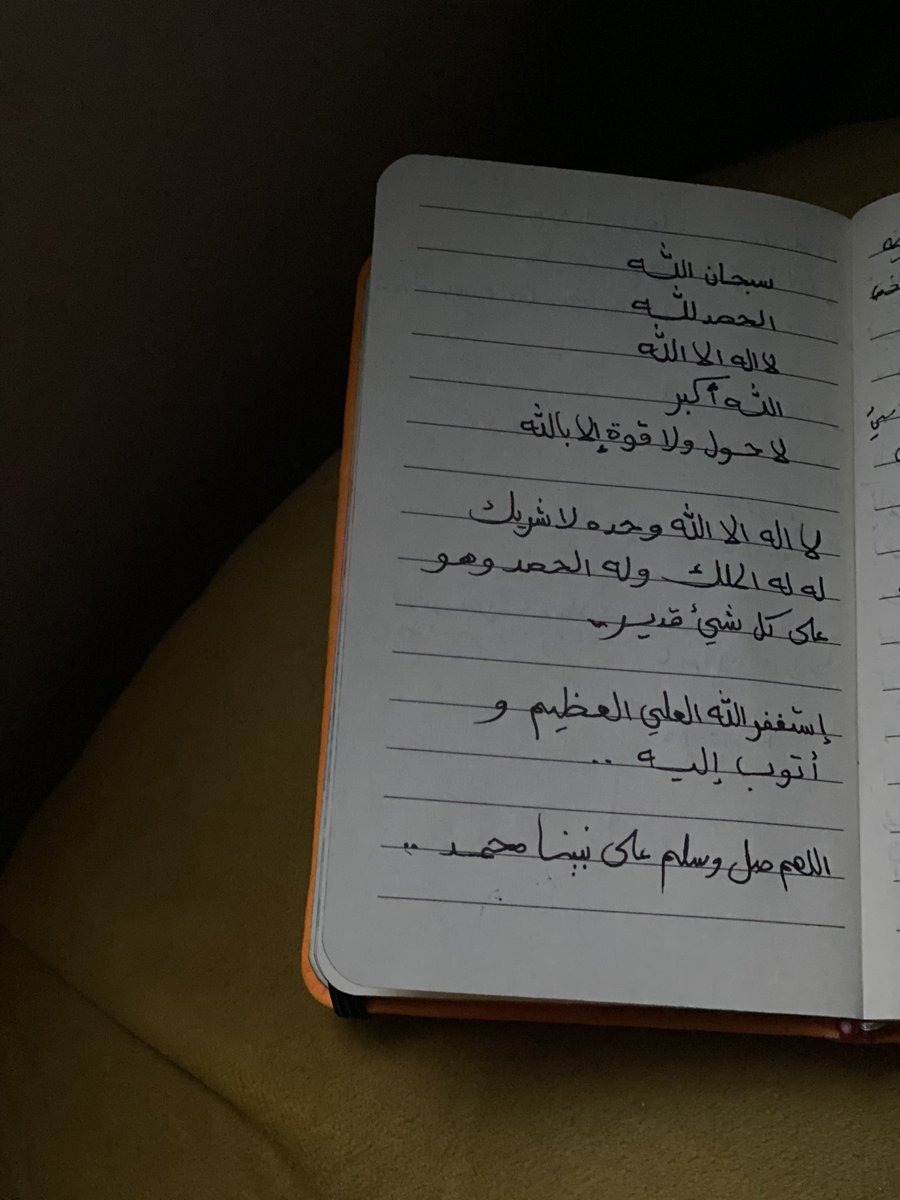 سبحان الله
الحمد لله
لا اله الا الله
الله أكبر
لا حول ولا قوة إلا بالله
لا اله الا الله وحده لا شريك
له له الملك وله الحمد وهو
على كل شيئ قدير..
إستغفر الله العلي العظيم و
أتوب إليه ..
اللهم صل وسلم على نبينا محمد ..